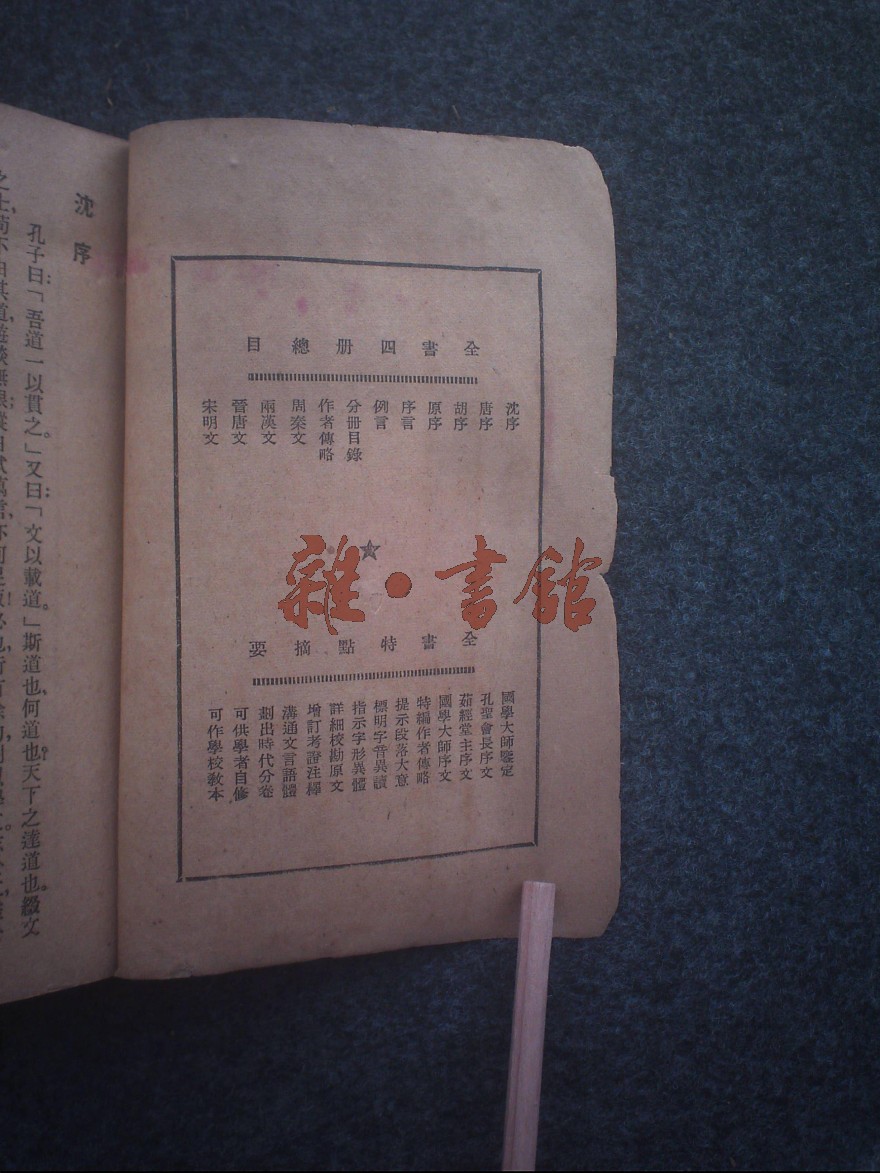 全書四册總目
沈序
唐序
胡序
原序
序言
例言
分冊目錄
作者傳略
周秦文
兩漢文
晉唐文
宋明文
雜·書館
全書特點摘要
國學大師鑒定
孔聖會長序文
茹經堂主序文
國學大師序文
特編作者傳略
提示段落大意
標明字音異讀
指示字形異體
詳細校勘原文
增訂考證注繹
溝通文言語體
劃出時代分卷
可供學者自修
可作學校敎本
沈序
孔子曰:「吾道一以貫之。」又曰:「文以載道。」斯道也,何道也?天下之達道也。綴文